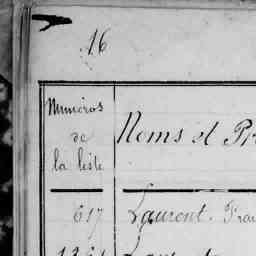 16
Numéros
de
la liste
Noms et Pr
617 Laurent, Fran